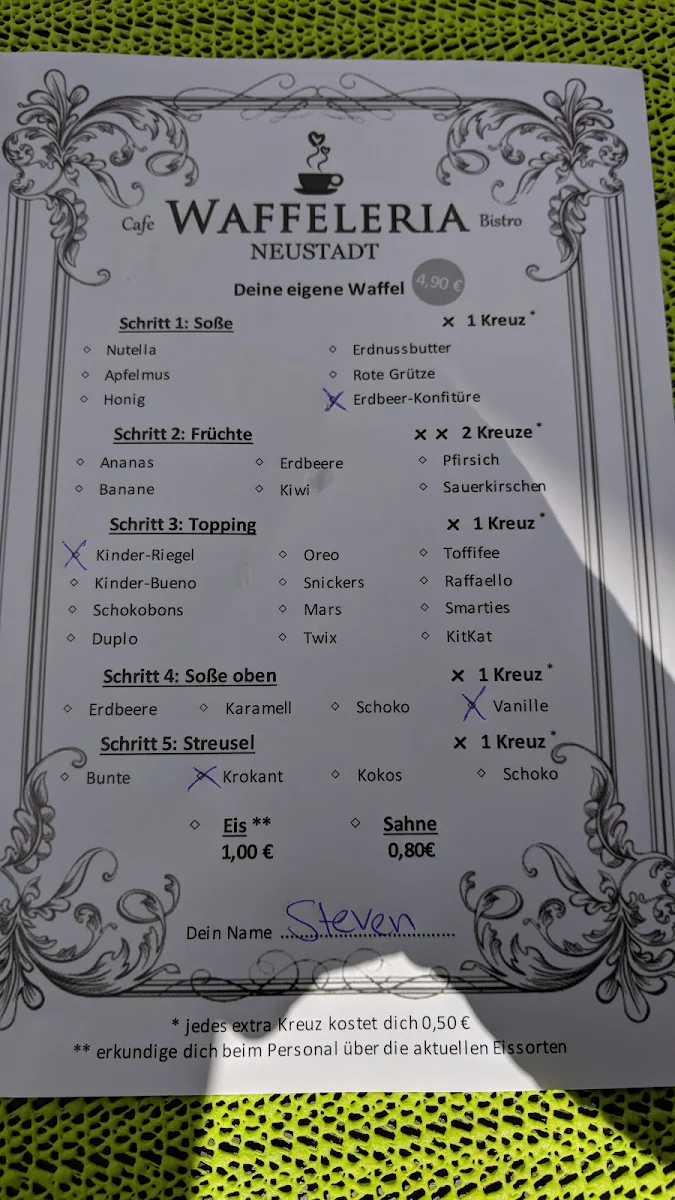 Cafe WAFFELERIA Bistro
NEUSTADT
Deine eigene Waffel 4,90 €
Schritt 1: Soße × 1 Kreuz *
Nutella Erdnussbutter
Apfelmus Rote Grütze
Honig Erdbeer-Konfitüre
Schritt 2: Früchte × × 2 Kreuze *
Ananas Erdbeere Pfirsich
Banane Kiwi Sauerkirschen
Schritt 3: Topping × 1 Kreuz *
Kinder-Riegel Oreo Toffifee
Kinder-Bueno Snickers Raffaello
Schokobons Mars Smarties
Duplo Twix KitKat
Schritt 4: Soße oben × 1 Kreuz *
Erdbeere Karamell Schoko Vanille
Schritt 5: Streusel × 1 Kreuz *
Bunte Krokant Kokos Schoko
Eis ** Sahne
1,00 € 0,80€
Dein Name Steven
* jedes extra Kreuz kostet dich 0,50 €
** erkundige dich beim Personal über die aktuellen Eissorten